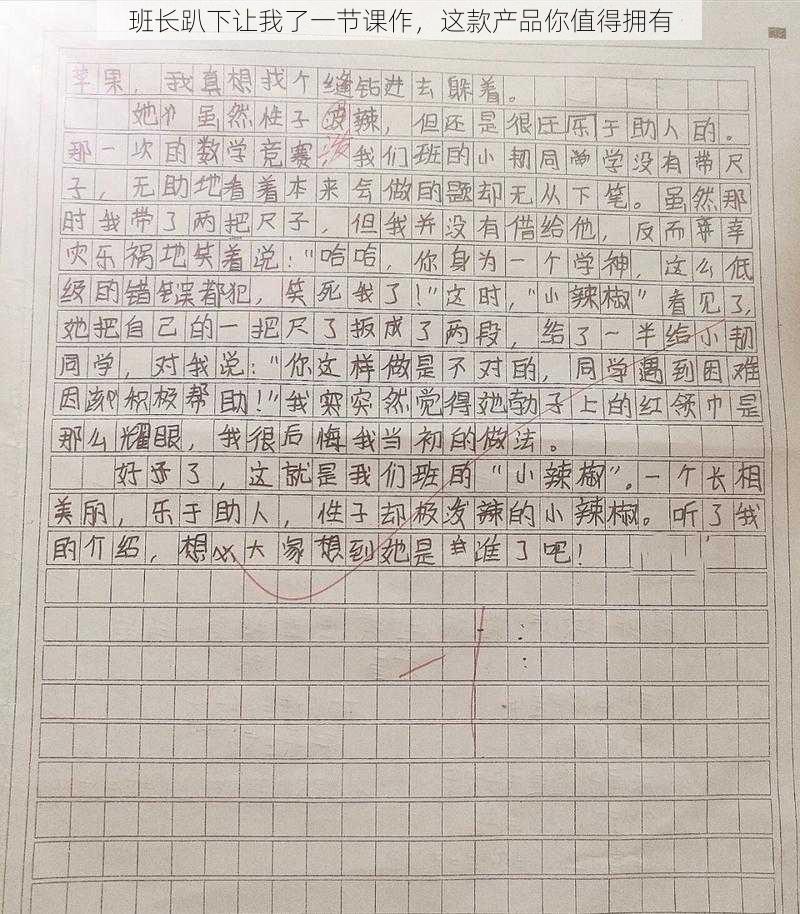 班长趴下让我了一节课作，这款产品你值得拥有
苹果，我真想找个缝钻进去躲着。
她虽然性子泼辣，但还是很乐于助人的。
那一次的数学竞赛我们班的小韧同学没有带尺
子，无助地看着本来会做的题却无从下笔。虽然那
时我带了两把尺子，但我并没有借给他，反而幸
灾乐祸地笑着说："哈哈，你身为一个学神，这么低
级的错误都犯，笑死我了！"这时，"小辣椒"看见了，
她把自己的一把尺了扳成了两段，给了一半给小韧
同学，对我说："你这样做是不对的，同学遇到困难
因该积极帮助！"我突然觉得她勃子上的红领巾是
那么耀眼，我很后悔我当初的做法。
好了，这就是我们班的"小辣椒"。一个长相
美丽，乐于助人，性子却极泼辣的小辣椒。听了我
的介绍，想必大家想到她是谁了吧！